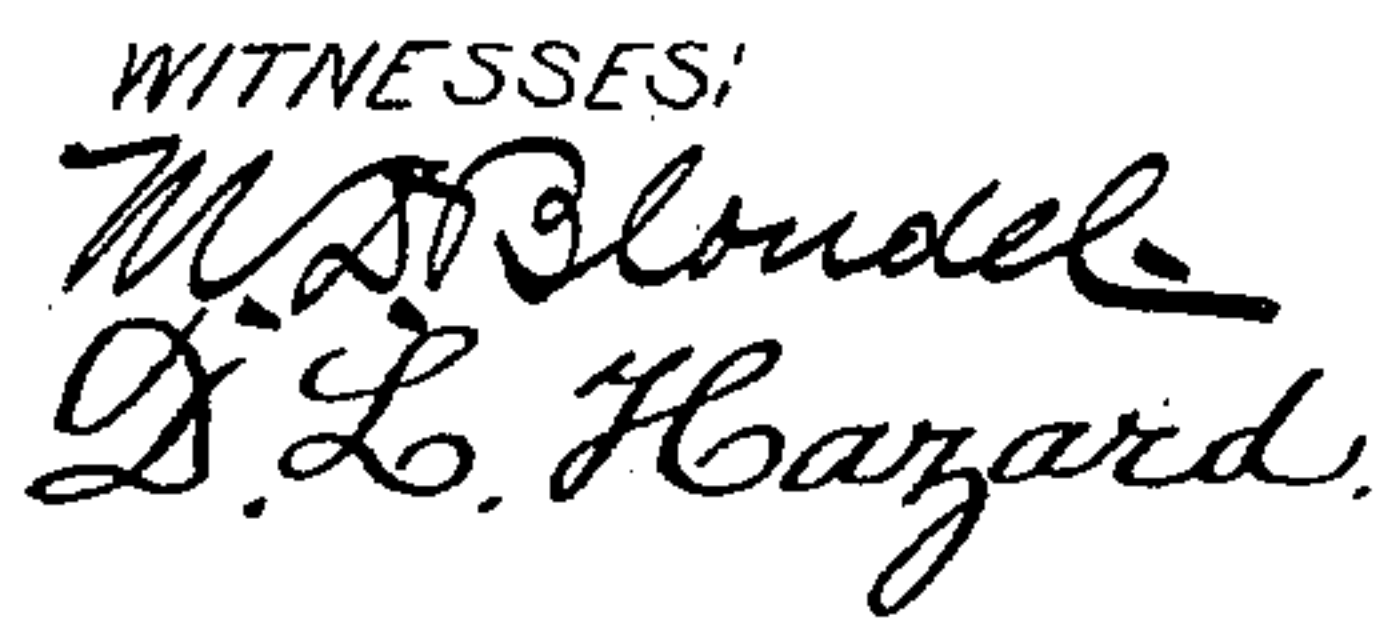 WITNESSES:
M. D. Blondel.
D. L. Hazard.